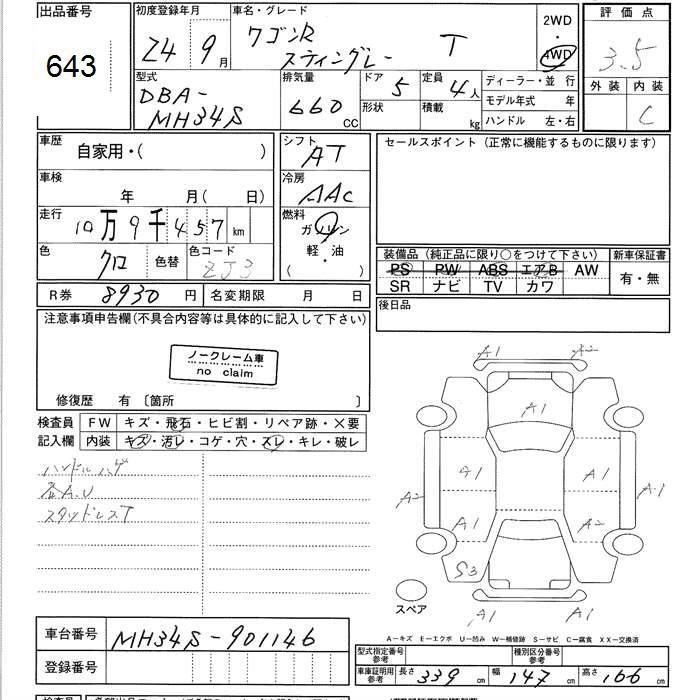 出品番号
643
初度登録年月
24年 9月
車名・グレード
ワゴンR
スティングレー T
2WD
・
4WD
評価点
3.5
外装 内装
C
型式
DBA-
MH34S
排気量
660 CC
ドア 5
形状
定員 4人
積載 kg
ディーラー・並行
モデル年式 年
ハンドル 左・右
車歴
自家用・( )
シフト
AT
セールスポイント(正常に機能するものに限ります)
車検
年 月( 日)
冷房
AAC
走行
10万9千457km
燃料
ガソリン
軽・油
( )
色
クロ
色替
色コード
ZJ3
装備品(純正品に限り○をつけて下さい)
新車保証書
PS PW ABS エアB AW
SR ナビ TV カワ
有・無
R券 8930円
名変期限 月 日
後日品
注意事項申告欄(不具合内容等は具体的に記入して下さい)
ノークレーム車
no claim
修復歴 有 〔箇所 〕
検査員
記入欄
FW キズ・飛石・ヒビ割・リペア跡・×要
内装 キズ・汚レ・コゲ・穴・スレ・キレ・破レ
ハンドルハゲ
各A.U
スタッドレスT
A1 A2
A1
A1 A1
A2 A1
A1 A2
S3
A1 A1
スペア
A－キズ E－エクボ U－凹み W－補修跡 S－サビ C－腐食 XX－交換済
車台番号 MH34S-901146
登録番号
型式指定番号
参考
種別区分番号
参考
車庫証明用
参考
長さ 339cm 幅 147cm 高さ 166cm